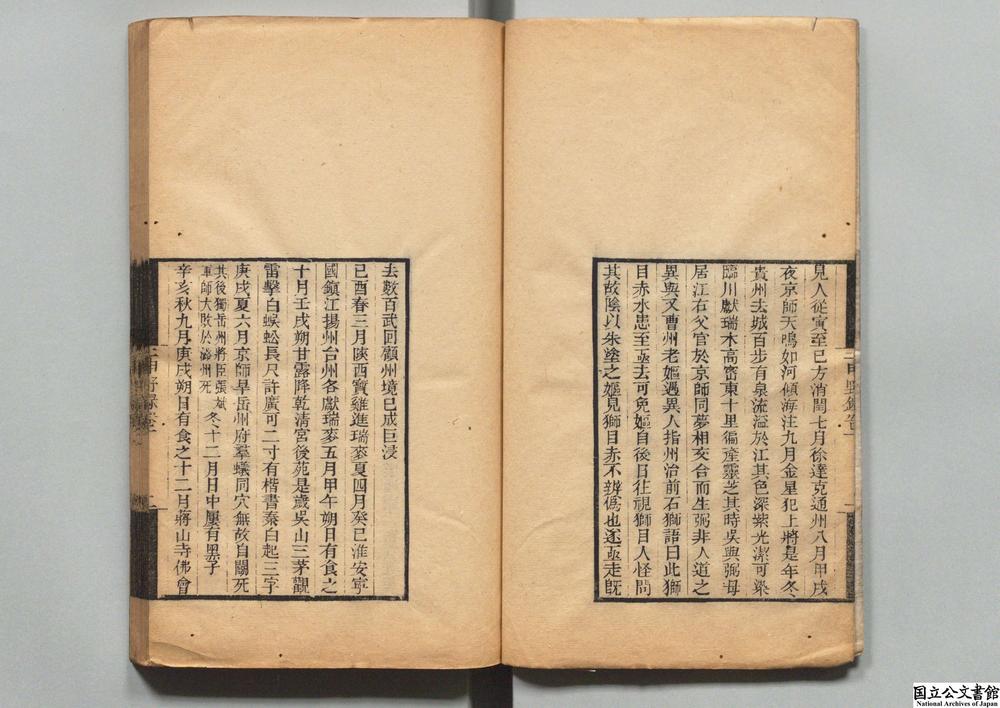 見人從寅至巳方消閏七月徐達克通州八月甲戌
夜京師天鳴如河傾海注九月金星犯上將是年冬
貴州去城百步有泉流溢於江其色深紫光潔可染
臨川獻瑞木高密東十里徧產靈芝其時吳興弼母
居江右父官於京師同夢相交合而生弼非人道之
異與又曹州老嫗遇異人指州治前石獅語曰此獅
目赤水患至亟去可免嫗自後日往視獅目人怪問
其故陰以朱塗之嫗見獅目赤不辨僞也遂亟走旣
去數百武回顧州境已成巨浸
己酉春三月陝西寶雞進瑞麥夏四月癸巳淮安寧
國鎭江揚州台州各獻瑞麥五月甲午朔日有食之
十月壬戌朔甘露降乾清宮後苑是歲吳山三茅觀
雷擊白蜈蚣長尺許廣可二寸有楷書秦白起三字
庚戌夏六月京師旱岳州府羣蟻同穴無故自鬭死
其後獨岳州將臣張斌
軍師大敗於
州死
冬十二月日中屢有黑子
辛亥秋九月庚戌朔日有食之十二月蔣山寺佛會
二申野錄卷一
二
国立公文書館
National Archives of Japan